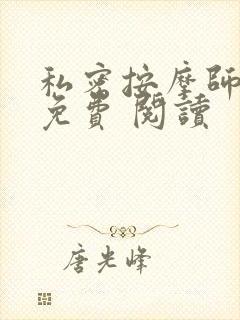 私密按摩師
免費 閱讀
唐光峰